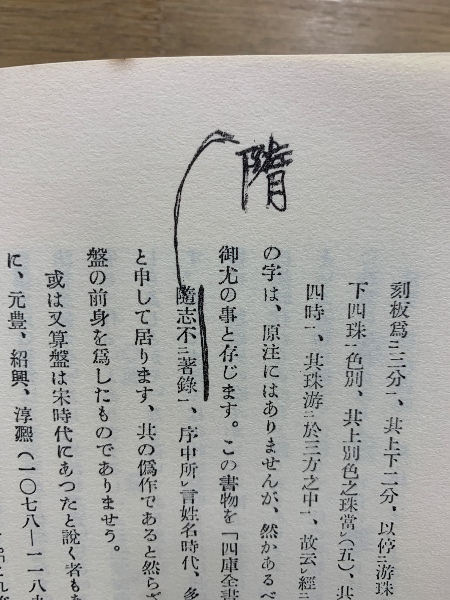 隋
刻板爲㆓三分㆒、其上下二分、以停㆓游珠
下四珠㆒色別、其上別色之珠當㆑(五)、其
四時㆒、其珠游㆓於三方之中㆒、故云㆑經㆓
の字は、原注にはありませんが、然かあるべ
御尤の事と存じます。この書物を「四庫全書
隨志不㆓著錄㆒、序中所㆑言姓名時代、多
と申して居ります、其の僞作であると然らざ
盤の前身を爲したものでありませう。
或は又算盤は宋時代にあつたと說く者もあ
に、元豊、紹興、淳熈(一〇七八—一一八